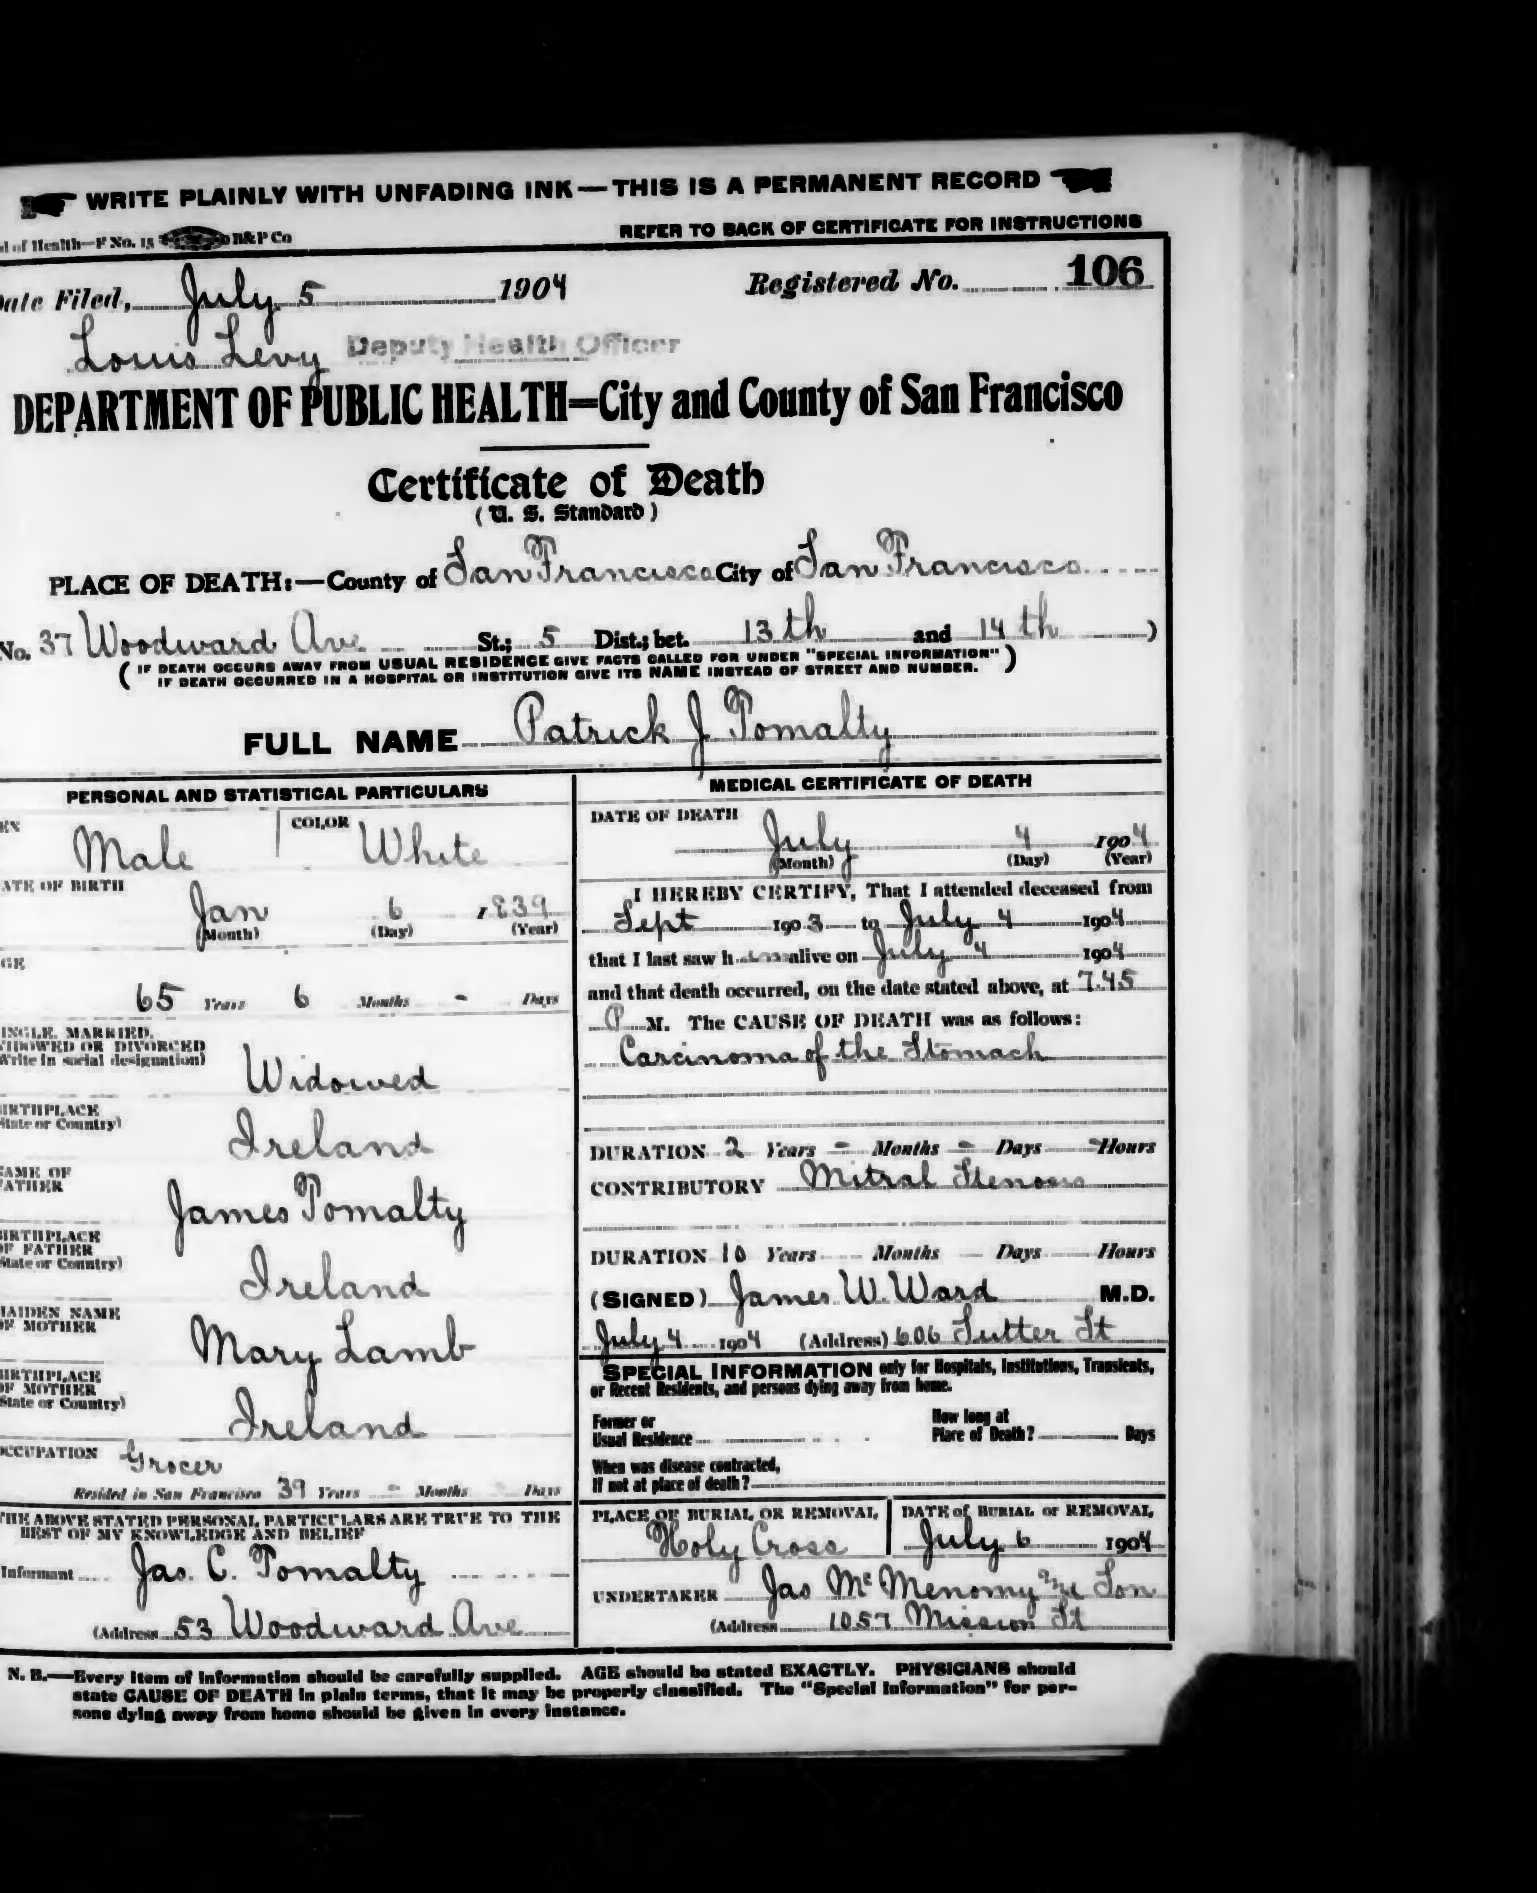 WRITE PLAINLY WITH UNFADING INK—THIS IS A PERMANENT RECORD
d of Health—F No. 15 B&P Co
REFER TO BACK OF CERTIFICATE FOR INSTRUCTIONS
Date Filed, July 5 1904 Registered No. 106
Louis Levy Deputy Health Officer
DEPARTMENT OF PUBLIC HEALTH=City and County of San Francisco
Certificate of Death
(U. S. Standard)
PLACE OF DEATH:—County of San Francisco City of San Francisco
No. 37 Woodward Ave St.; 5 Dist.; bet. 13th and 14th )
( IF DEATH OCCURS AWAY FROM USUAL RESIDENCE GIVE FACTS CALLED FOR UNDER "SPECIAL INFORMATION" )
IF DEATH OCCURRED IN A HOSPITAL OR INSTITUTION GIVE ITS NAME INSTEAD OF STREET AND NUMBER.
FULL NAME Patrick J Tomalty
PERSONAL AND STATISTICAL PARTICULARS
EX Male COLOR White
ATE OF BIRTH
Jan 6 1839
(Month) (Day) (Year)
GE
65 Years 6 Months - Days
INGLE, MARRIED,
WIDOWED OR DIVORCED
Write in social designation)
Widowed
BIRTHPLACE
State or Country)
Ireland
NAME OF
FATHER
James Tomalty
BIRTHPLACE
OF FATHER
State or Country)
Ireland
MAIDEN NAME
OF MOTHER
Mary Lamb
BIRTHPLACE
OF MOTHER
State or Country)
Ireland
OCCUPATION Grocer
Resided in San Francisco 39 Years - Months - Days
THE ABOVE STATED PERSONAL PARTICULARS ARE TRUE TO THE
BEST OF MY KNOWLEDGE AND BELIEF
Informant Jas. C. Tomalty
(Address 53 Woodward Ave
MEDICAL CERTIFICATE OF DEATH
DATE OF DEATH
July 4 1904
(Month) (Day) (Year)
I HEREBY CERTIFY, That I attended deceased from
Sept 1903 to July 4 1904
that I last saw him alive on July 4 1904
and that death occurred, on the date stated above, at 7.45
P M. The CAUSE OF DEATH was as follows:
Carcinoma of the Stomach
DURATION 2 Years - Months - Days - Hours
CONTRIBUTORY Mitral Stenosis
DURATION 10 Years Months Days Hours
(SIGNED) James W. Ward M.D.
July 4 1904 (Address) 606 Sutter St
SPECIAL INFORMATION only for Hospitals, Institutions, Transients,
or Recent Residents, and persons dying away from home.
Former or
Usual Residence
How long at
Place of Death? Days
When was disease contracted,
If not at place of death?
PLACE OF BURIAL OR REMOVAL
Holy Cross
DATE of BURIAL or REMOVAL
July 6 1904
UNDERTAKER Jas McMenomy and Son
(Address 1057 Mission St
N. B.—Every item of information should be carefully supplied. AGE should be stated EXACTLY. PHYSICIANS should
state CAUSE OF DEATH in plain terms, that it may be properly classified. The "Special Information" for per-
sons dying away from home should be given in every instance.